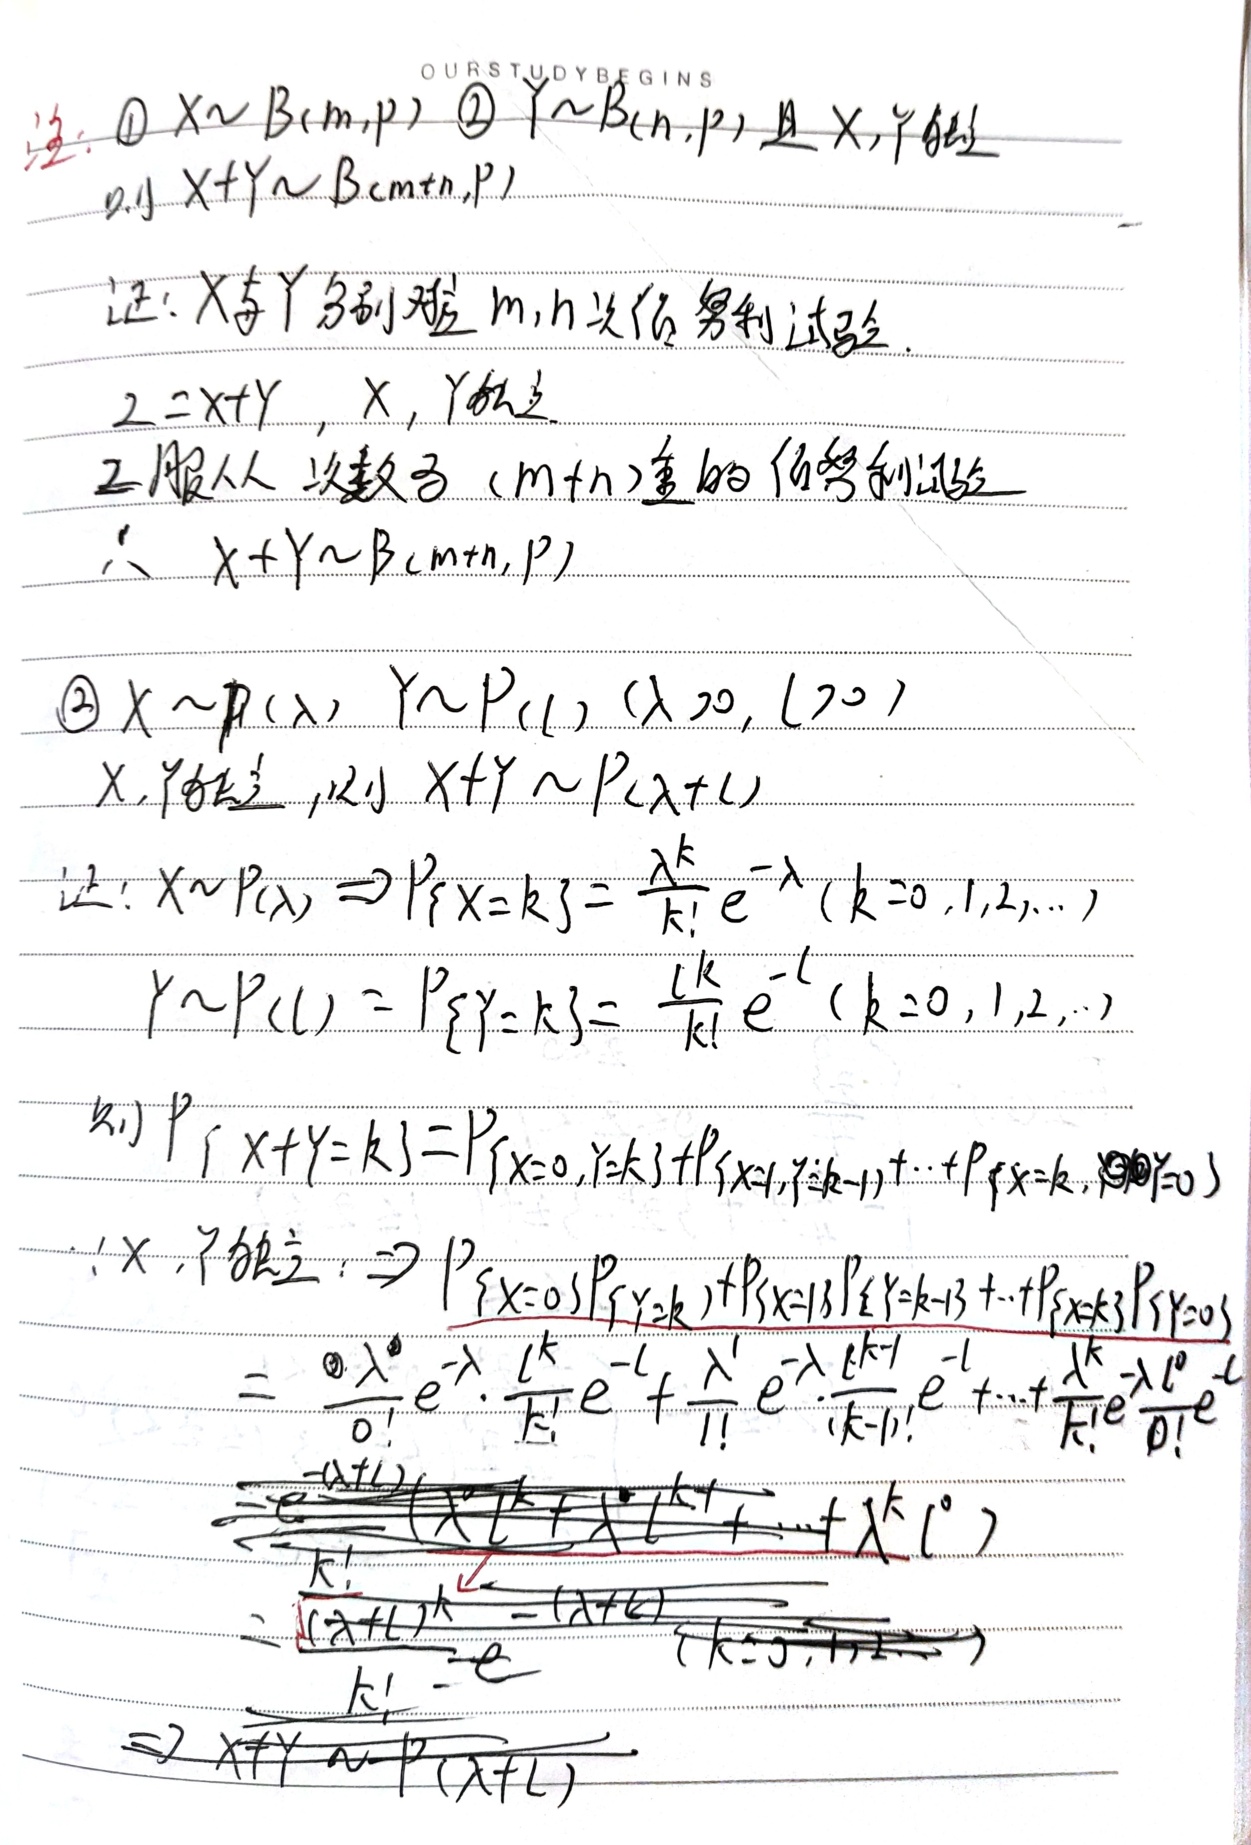 OURSTUDYBEGINS
注: ① X~B(m,p) ② Y~B(n,p) 且 X,Y独立
则 X+Y~B(m+n,p)
证: X与Y分别对应 m,n次伯努利试验.
Z=X+Y , X, Y独立
Z服从 次数为 (m+n)重的 伯努利试验
∴ X+Y~B(m+n, p)
② X~P(λ) Y~P(l) (λ>0, l>0)
X,Y独立, 则 X+Y~P(λ+l)
证: X~P(λ) ⇒ P{X=k} = λ^k/k! e^-λ (k=0,1,2,...)
Y~P(l) = P{Y=k} = l^k/k! e^-l (k=0,1,2,..)
则 P{X+Y=k}=P{X=0,Y=k}+P{X=1,Y=k-1}+...+P{X=k,Y=0}
∵X,Y独立 ⇒ P{X=0}P{Y=k}+P{X=1}P{Y=k-1}+...+P{X=k}P{Y=0}
= λ^0/0! e^-λ · l^k/k! e^-l + λ^1/1! e^-λ · l^k-1/(k-1)! e^-l +...+ λ^k/k! e^-λ l^0/0! e^-l
= e^-(λ+l)/k! (λ^0 l^k + λ l^k-1 + ... + λ^k l^0)
= (λ+l)^k/k! e^-(λ+l) (k=0,1,2...)
⇒ X+Y ~ P(λ+l)